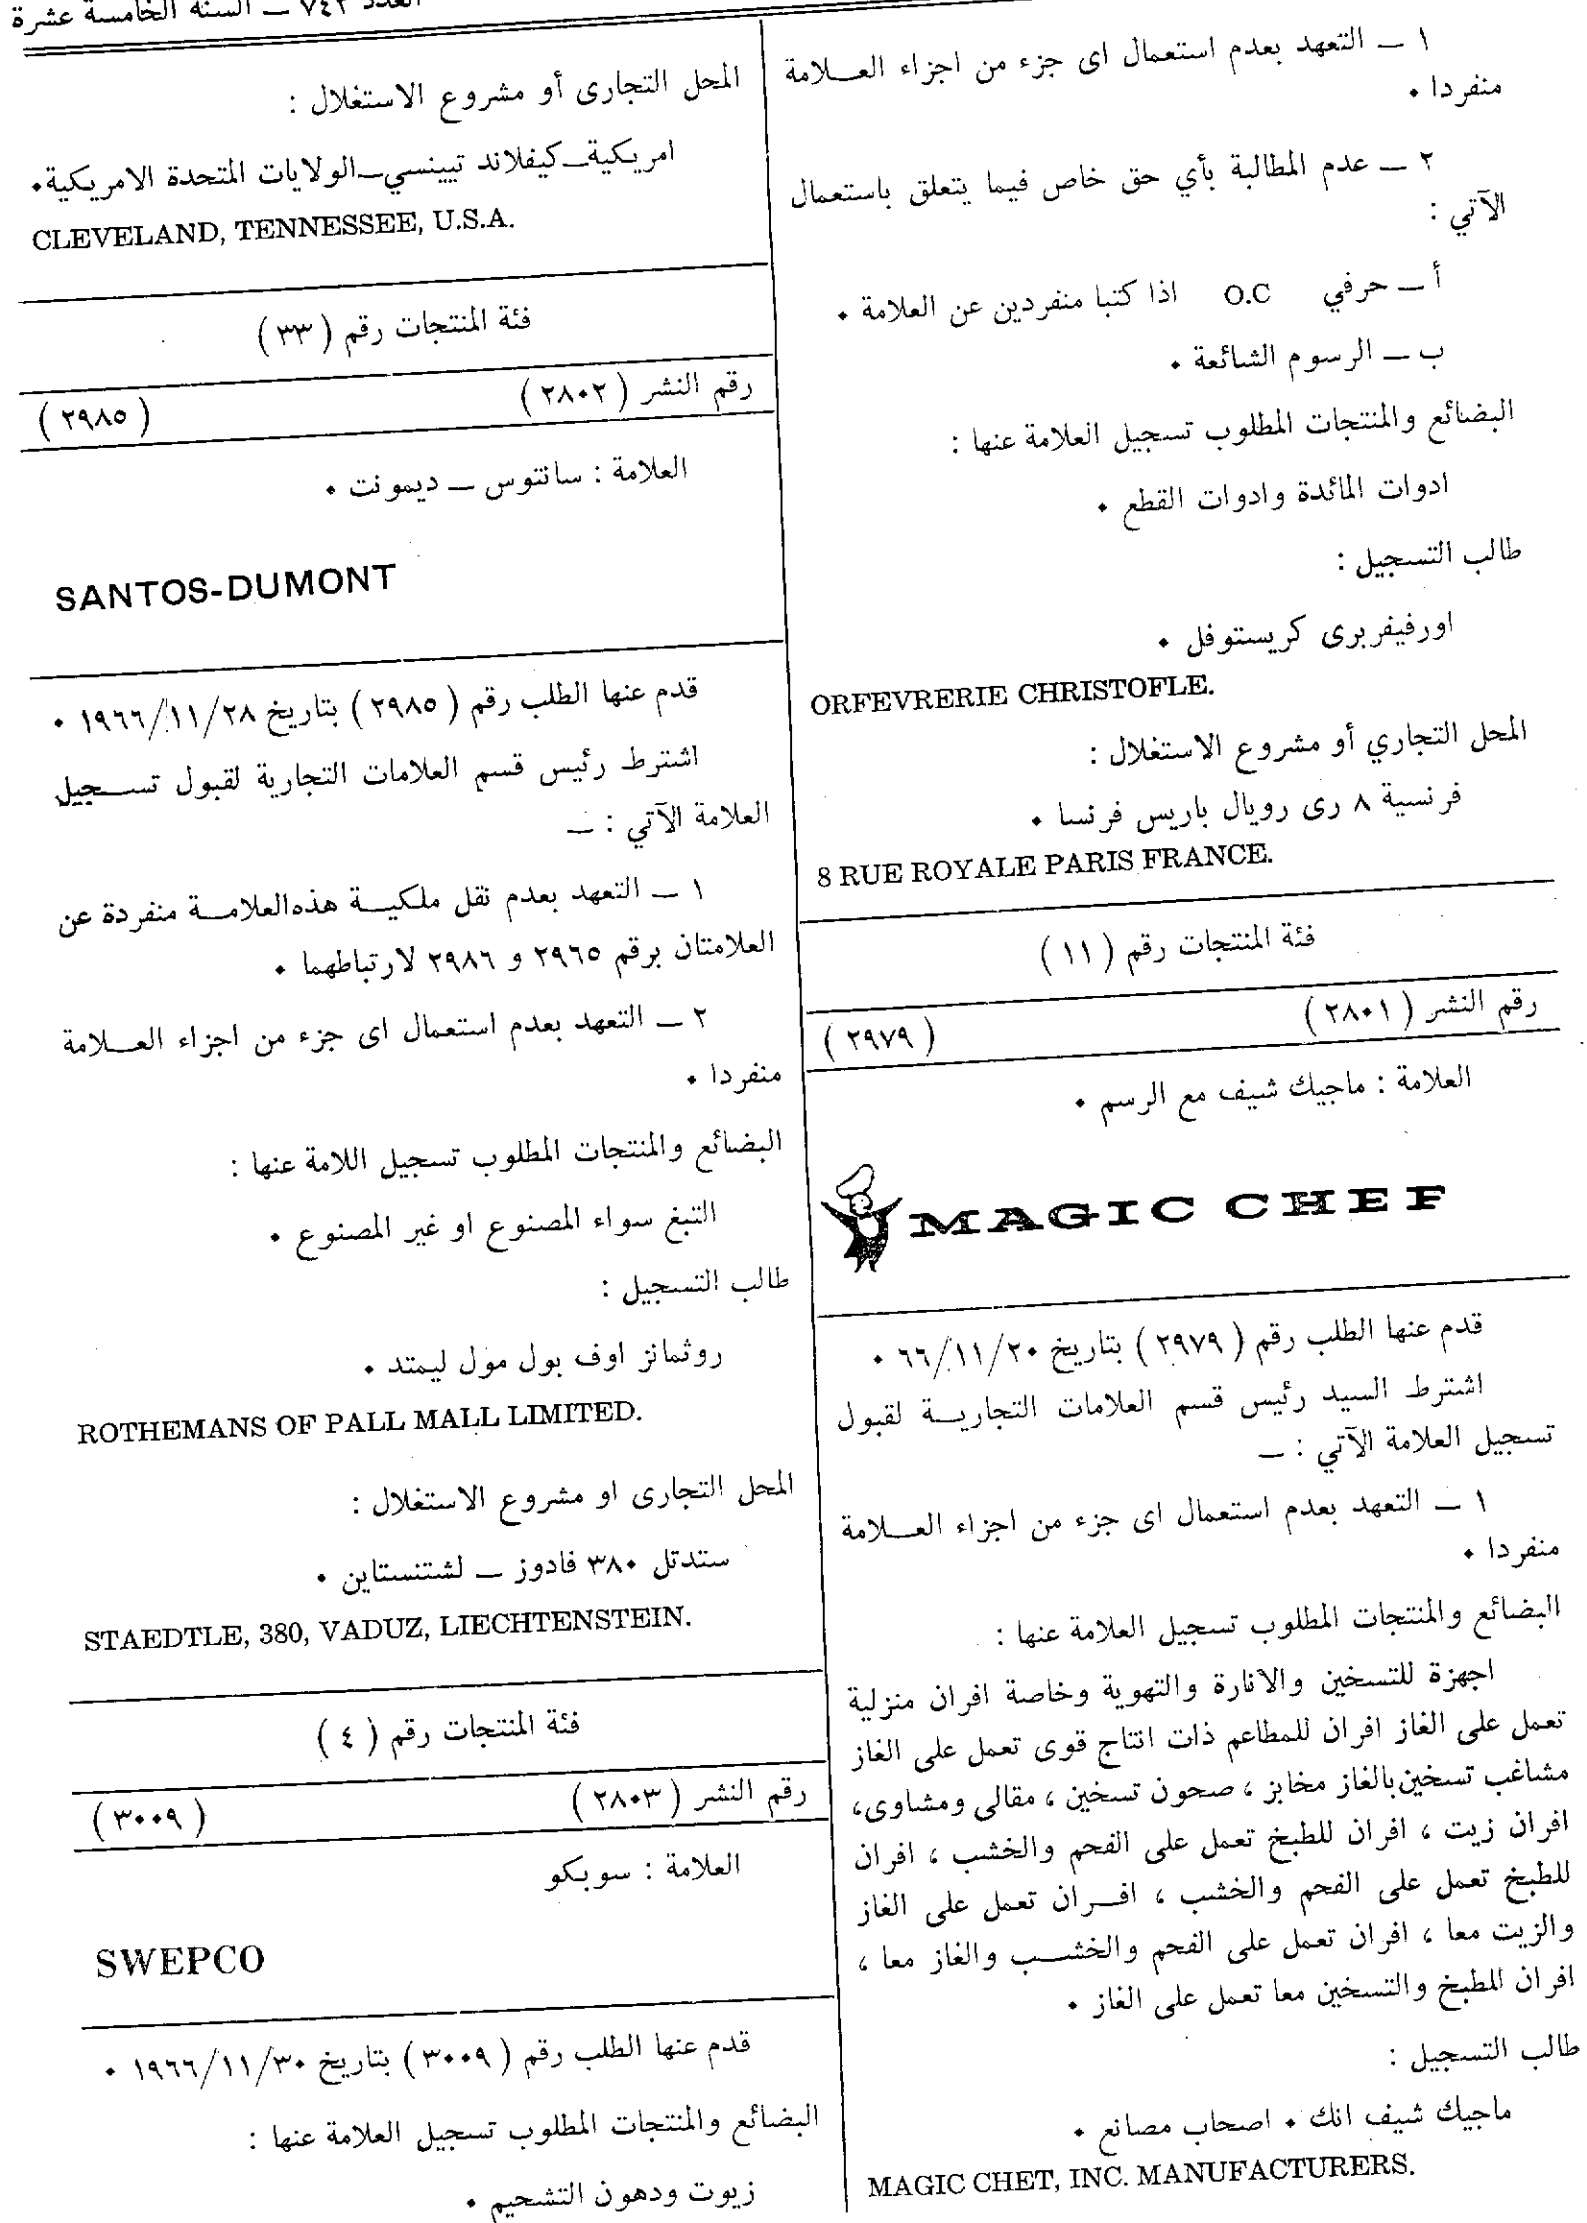 العدد ٧٤٢ ــ السنة الخامسة عشرة
١ ــ التعهد بعدم استعمال اى جزء من اجزاء العـــلامة
منفردا ٠
٢ ــ عدم المطالبة بأي حق خاص فيما يتعلق باستعمال
الآتي :
أ ــ حرفي O.C اذا كتبا منفردين عن العلامة ٠
ب ــ الرسوم الشائعة ٠
البضائع والمنتجات المطلوب تسجيل العلامة عنها :
ادوات المائدة وادوات القطع ٠
طالب التسجيل :
اورفيفربرى كريستوفل ٠
ORFEVRERIE CHRISTOFLE.
المحل التجاري أو مشروع الاستغلال :
فرنسية ٨ رى رويال باريس فرنسا ٠
8 RUE ROYALE PARIS FRANCE.
فئة المنتجات رقم ( ١١ )
رقم النشر ( ٢٨٠١ ) ( ٢٩٧٩ )
العلامة : ماجيك شيف مع الرسم ٠
MAGIC CHEF
قدم عنها الطلب رقم ( ٢٩٧٩ ) بتاريخ ٦٦/١١/٢٠ ٠
اشترط السيد رئيس قسم العلامات التجاريــة لقبول
تسجيل العلامة الآتي : ــ
١ ــ التعهد بعدم استعمال اى جزء من اجزاء العـــلامة
منفردا ٠
البضائع والمنتجات المطلوب تسجيل العلامة عنها :
اجهزة للتسخين والانارة والتهوية وخاصة افران منزلية
تعمل على الغاز افران للمطاعم ذات انتاج قوى تعمل على الغاز
مشاغب تسخين بالغاز مخابز ، صحون تسخين ، مقالى ومشاوى،
افران زيت ، افران للطبخ تعمل على الفحم والخشب ، افران
للطبخ تعمل على الفحم والخشب ، افــران تعمل على الغاز
والزيت معا ، افران تعمل على الفحم والخشــب والغاز معا ،
افران للطبخ والتسخين معا تعمل على الغاز ٠
طالب التسجيل :
ماجيك شيف انك ٠ اصحاب مصانع ٠
MAGIC CHET, INC. MANUFACTURERS.
المحل التجارى أو مشروع الاستغلال :
امريكية ــ كيفلاند تيينسي ــ الولايات المتحدة الامريكية٠
CLEVELAND, TENNESSEE, U.S.A.
فئة المنتجات رقم ( ٣٣ )
رقم النشر ( ٢٨٠٢ ) ( ٢٩٨٥ )
العلامة : سانتوس ــ ديمونت ٠
SANTOS-DUMONT
قدم عنها الطلب رقم ( ٢٩٨٥ ) بتاريخ ١٩٦٦/١١/٢٨ ٠
اشترط رئيس قسم العلامات التجارية لقبول تســجيل
العلامة الآتي : ــ
١ ــ التعهد بعدم نقل ملكيــة هذه العلامــة منفردة عن
العلامتان برقم ٢٩٦٥ و ٢٩٨٦ لارتباطهما ٠
٢ ــ التعهد بعدم استعمال اى جزء من اجزاء العـــلامة
منفردا ٠
البضائع والمنتجات المطلوب تسجيل اللامة عنها :
التبغ سواء المصنوع او غير المصنوع ٠
طالب التسجيل :
روثمانز اوف بول مول ليمتد ٠
ROTHEMANS OF PALL MALL LIMITED.
المحل التجارى او مشروع الاستغلال :
ستدتل ٣٨٠ فادوز ــ لشتنستاين ٠
STAEDTLE, 380, VADUZ, LIECHTENSTEIN.
فئة المنتجات رقم ( ٤ )
رقم النشر ( ٢٨٠٣ ) ( ٣٠٠٩ )
العلامة : سوبكو
SWEPCO
قدم عنها الطلب رقم ( ٣٠٠٩ ) بتاريخ ١٩٦٦/١١/٣٠ ٠
البضائع والمنتجات المطلوب تسجيل العلامة عنها :
زيوت ودهون التشحيم ٠